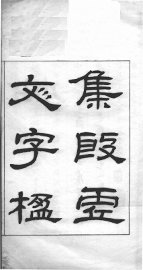 集殷虛
文字楹